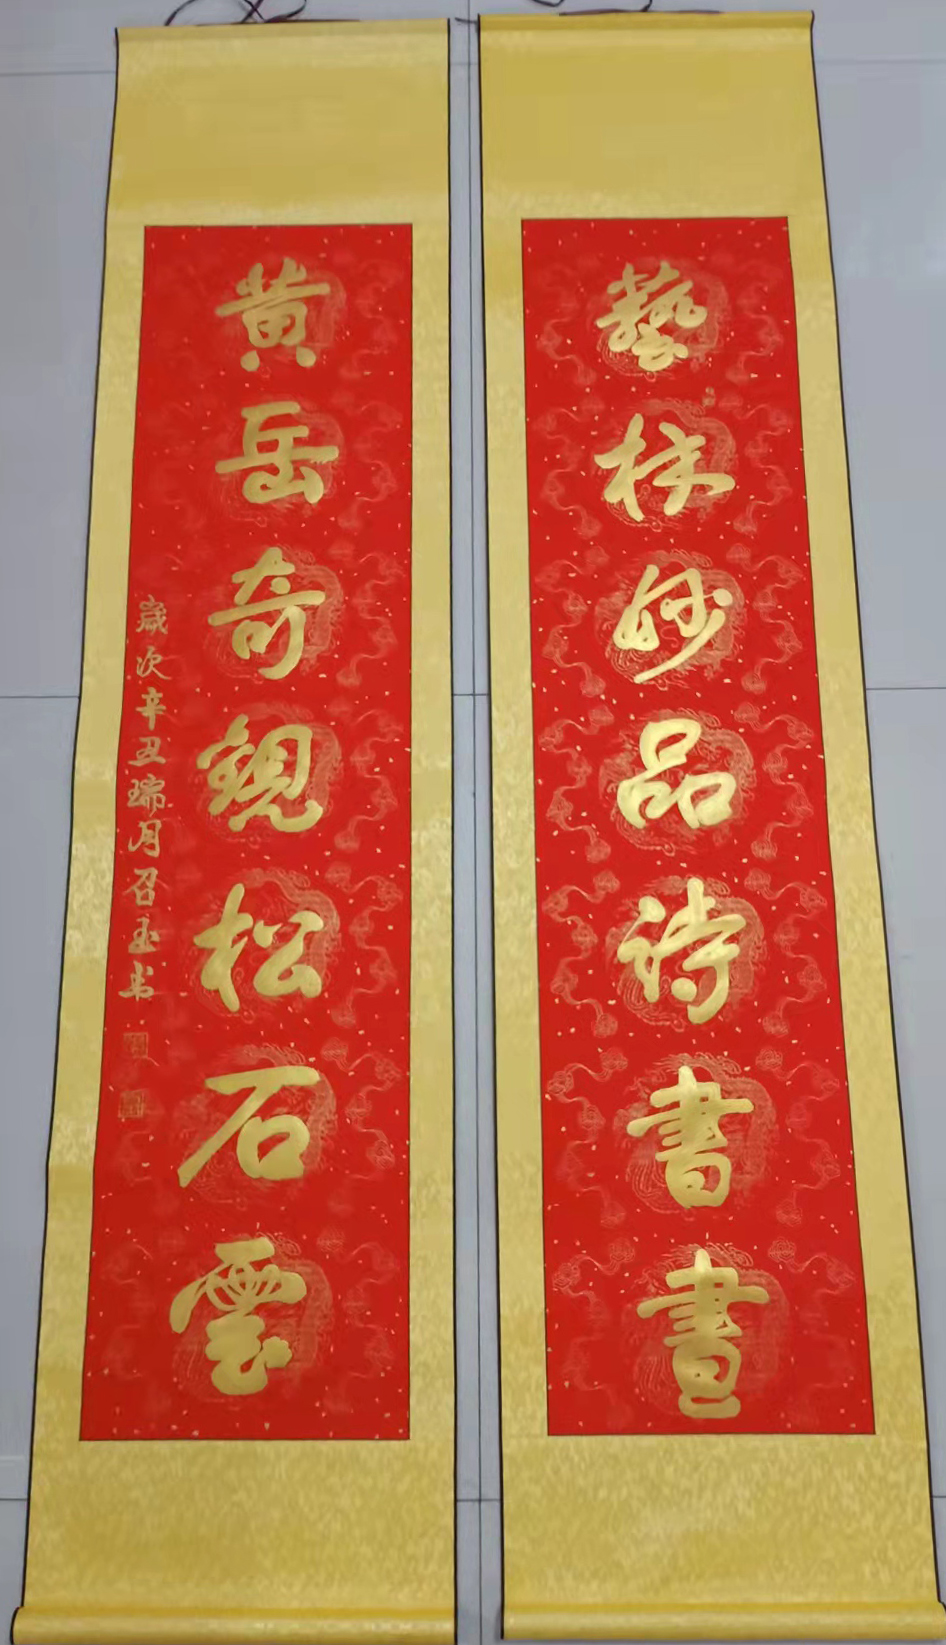 藝林妙品詩書畫
黄岳奇觀松石雲
歲次辛丑瑞月召玉书